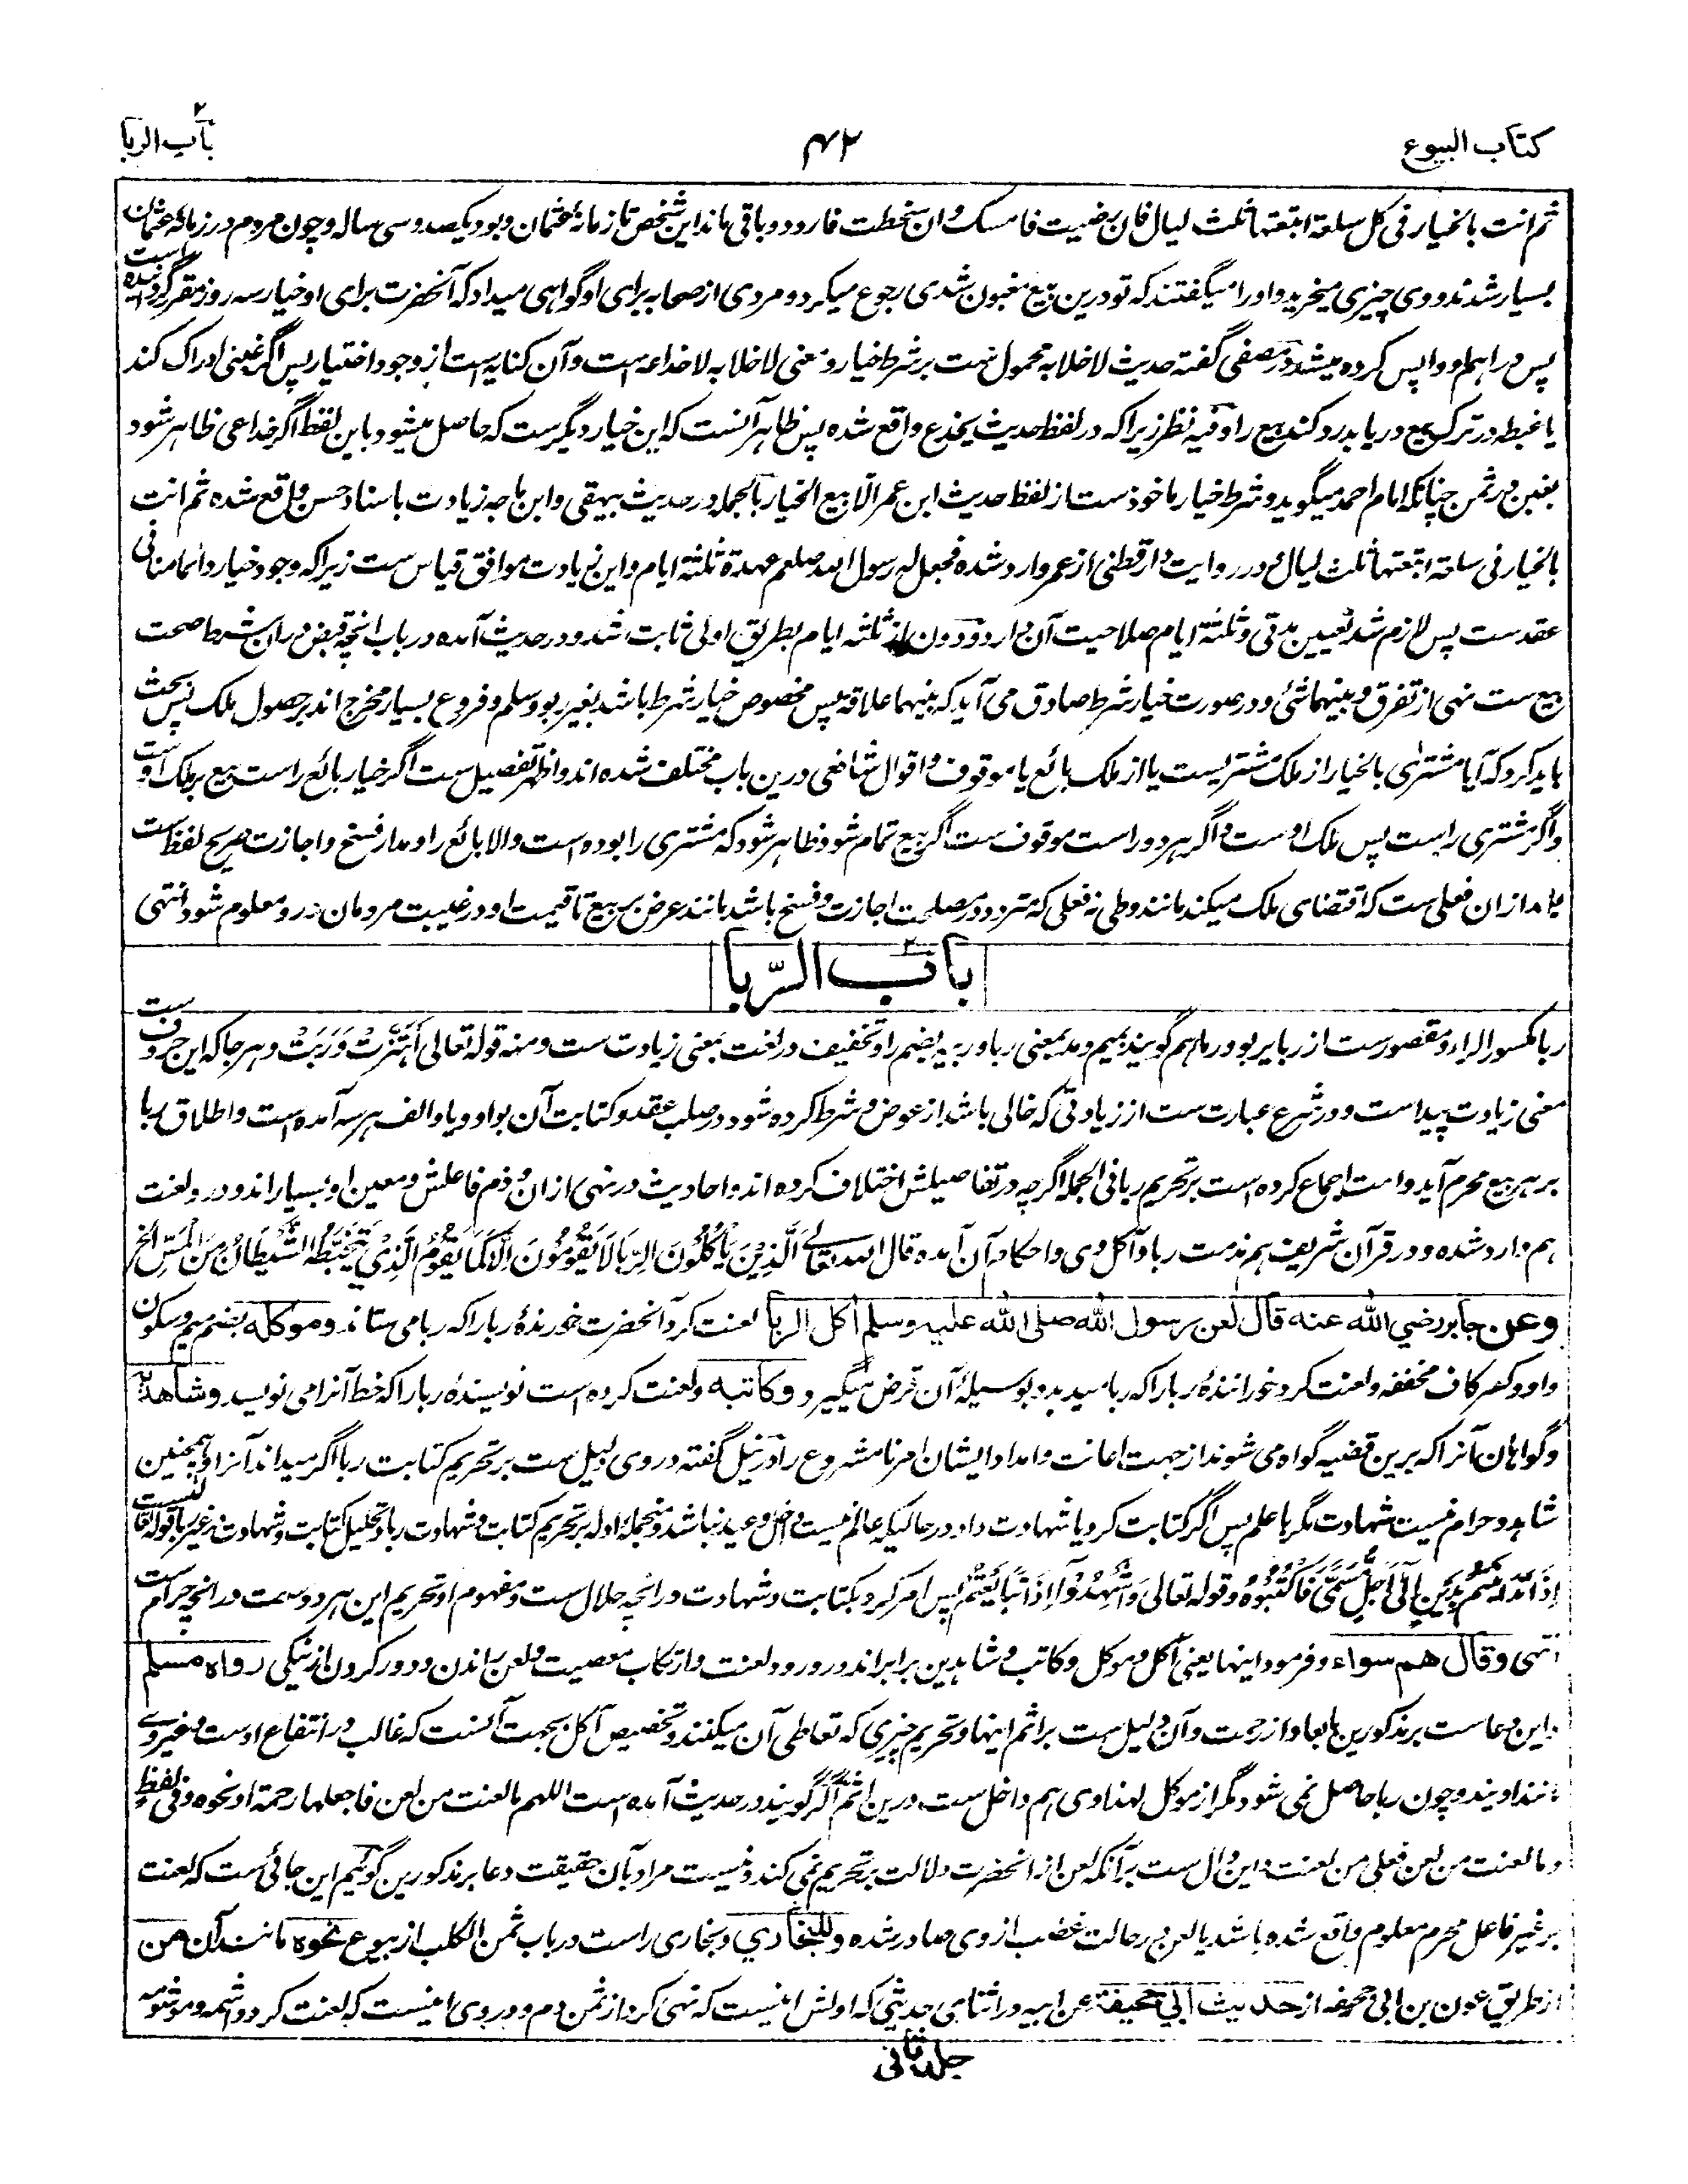 کتاب البیوع
۴۲
باب الربا
ثم انت بالخیار فی کل سلعة ابتعتها ثلث لیال فان رضیت فامسک وان سخطت فاردد و باقی ماند این شخص تا زمانهٔ عثمان و بود یکصد و سی ساله و چون مردم در زمانهٔ عثمان
بسیار شدند و وی چیزی میخرید و او را میگفتند که تو درین بیع مغبون شدی رجوع میکرد و مردی از صحابه برای او گواهی میداد که آنحضرت برای او خیار سه روز مقرر گردانیده است
پس دراهم او واپس کرده میشد و در مصفی گفته حدیث لا خلابه محمول ست بر شرط خیار و معنی لا خلابه لا خداعه است و آن کنایه است از وجود اختیار پس اگر غبنی ادراک کند
یا غبطه در ترک بیع دریابد رد کند بیع را و فیه نظر زیرا که در لفظ حدیث یخدع واقع شده پس ظاهر آنست که این خیار دیگرست که حاصل میشود باین لفظ اگر خداعی ظاهر شود
بغبن در ثمن چنانکه امام احمد میگوید و شرط خیار ماخوذ ست از لفظ حدیث ابن عمر الا بیع الخیار بالجمله در حدیث بیهقی و ابن ماجه زیادت باسناد حسن واقع شده ثم انت
بالخیار فی سلعة ابتعتها ثلث لیال و در روایت دارقطنی از عمر وارد شده فجعل له رسول الله صلعم عهدة ثلثة ایام و این زیادت موافق قیاس ست زیرا که وجود خیار دائما منافی
عقد ست پس لازم شد تعیین مدتی و ثلثة ایام صلاحیت آن دارد و دون از ثلثه ایام بطریق اولی ثابت شد و در حدیث آمده در باب انچه قبض دران شرط صحت
بیع ست نهی از تفرق و بینهما شئ و در صورت خیار شرط صادق می آید که بینهما علاقة پس مخصوص خیار شرط باشد بغیر ربو و سلم و فروع بسیار مخرج اند بر حصول ملک پس بحث
باید کرد که آیا مشتری بالخیار از ملک مشتریست یا از ملک بائع یا موقوف و اقوال شافعی درین باب مختلف شده اند و اظهر تفصیل ست اگر خیار بائع راست بیع بر ملک اوست
و اگر مشتری راست پس ملک اوست و اگر هر دو راست موقوف ست اگر بیع تمام شود ظاهر شود که مشتری را بوده است و الا بائع را و مدار فسخ و اجازت صریح لفظ ست
یا مدار ان فعلی ست که اقتضای ملک میکند مانند وطی نه فعلی که متردد در مصلحت اجازت و فسخ باشد مانند عرض بر بیع تا قیمت او در غیبت مردمان درو معلوم شود انتهی
باب الربا
ربا مکسور الراء و مقصورست از ربا یربو و رما هم گویند بمیم و مد بمعنی ربا و ربیه بضم را و تخفیف در لغت بمعنی زیادت ست و منه قوله تعالی اهْتَزَّتْ وَرَبَتْ و هر جا که این حروف ست
معنی زیادت پیداست و در شرع عبارت ست از زیادتی که خالی باشد از عوض و شرط کرده شود در صلب عقد و کتابت آن بواو و یا و الف هر سه آمده است و اطلاق ربا
بر هر بیع محرم آید و امت اجماع کرده است بر تحریم ربا فی الجمله اگرچه در تفاصیلش اختلاف کرده اند و احادیث در نهی ازان و ذم فاعلش و معین او بسیار اند و در و لعنت
هم وارد شده و در قرآن شریف هم مذمت ربا و آکل وی و احکام آن آمده قال الله تعالی الَّذِیْنَ یَأْکُلُوْنَ الرِّبَا لَا یَقُوْمُوْنَ اِلَّا کَمَا یَقُوْمُ الَّذِیْ یَتَخَبَّطُهُ الشَّیْطَانُ مِنَ الْمَسِّ الخ
وعن جابر رضی الله عنه قال لعن رسول الله صلی الله علیه وسلم اکل الربا لعنت کرد آنحضرت خورندهٔ ربا را که ربا می ستاند وموکله بضم میم و سکون
واو و کسر کاف مخففه و لعنت کرد خورانندهٔ ربا را که ربا میدهد و بوسیلهٔ آن قرض میگیرد وکاتبه و لعنت کرده است نویسندهٔ ربا را که خط آنرا می نویسد وشاهدیه
و گواهان آنرا که برین قضیه گواه می شوند از جهت اعانت و امداد ایشان امر نامشروع را در نیل گفته در وی دلیل ست بر تحریم کتابت ربا اگر میداند آنرا و همچنین
شاهد و حرام نیست شهادت مگر با علم پس اگر کتابت کرد یا شهادت داد در حالیکه عالم نیست داخل وعید نباشد و منجمله ادله بر تحریم کتابت و شهادت ربا و تحلیل کتابت و شهادت در غیر ربا قوله تعالی ست
اِذَا تَدَایَنْتُمْ بِدَیْنٍ اِلٰی اَجَلٍ مُّسَمًّی فَاکْتُبُوْهُ و قوله تعالی وَاَشْهِدُوْا اِذَا تَبَایَعْتُمْ پس امر کرد بکتابت و شهادت در انچه حلال ست و مفهوم او تحریم این هر دو ست در انچه حرام ست
انتهی وقال هم سواء و فرمود اینها یعنی آکل و موکل و کاتب و شاهدین برابر اند در ورود لعنت و ارتکاب معصیت و لعن راندن و دور کردن از نیکی رواه مسلم
این دعاست بر مذکورین بابعاد از رحمت و آن دلیل ست بر اثم اینها و تحریم چیزی که تعاطی آن میکنند و تخصیص آکل بجهت آنست که غالب در انتفاع اوست و غیر وی
مانند اویند و چون ربا حاصل نمی شود مگر از موکل لهذا وی هم داخل ست درین اثم اگر گویند در حدیث آمده است اللهم ما لعنت من لعن فاجعلها رحمة او نحوه و فی لفظ
و ما لعنت من لعن فعلی من لعنت این دال ست بر آنکه لعن از آنحضرت دلالت بر تحریم نمی کند و نیست مراد بآن حقیقت دعا بر مذکورین گوئیم این جائی ست که لعنت
بر غیر فاعل محرم معلوم واقع شده باشد یا لعن در حالت غضب از وی صادر شده وللبخاري و بخاری راست در باب ثمن الکلب از بیوع نحوه مانند آن من
از طریق عون بن ابی جحیفه از حدیث ابی جحیفة عن ابیه در اثنای حدیثی که اولش اینست که نهی کرد از ثمن دم و در وی اینست که لعنت کرد واشمه و موشومه
جلد ثانی